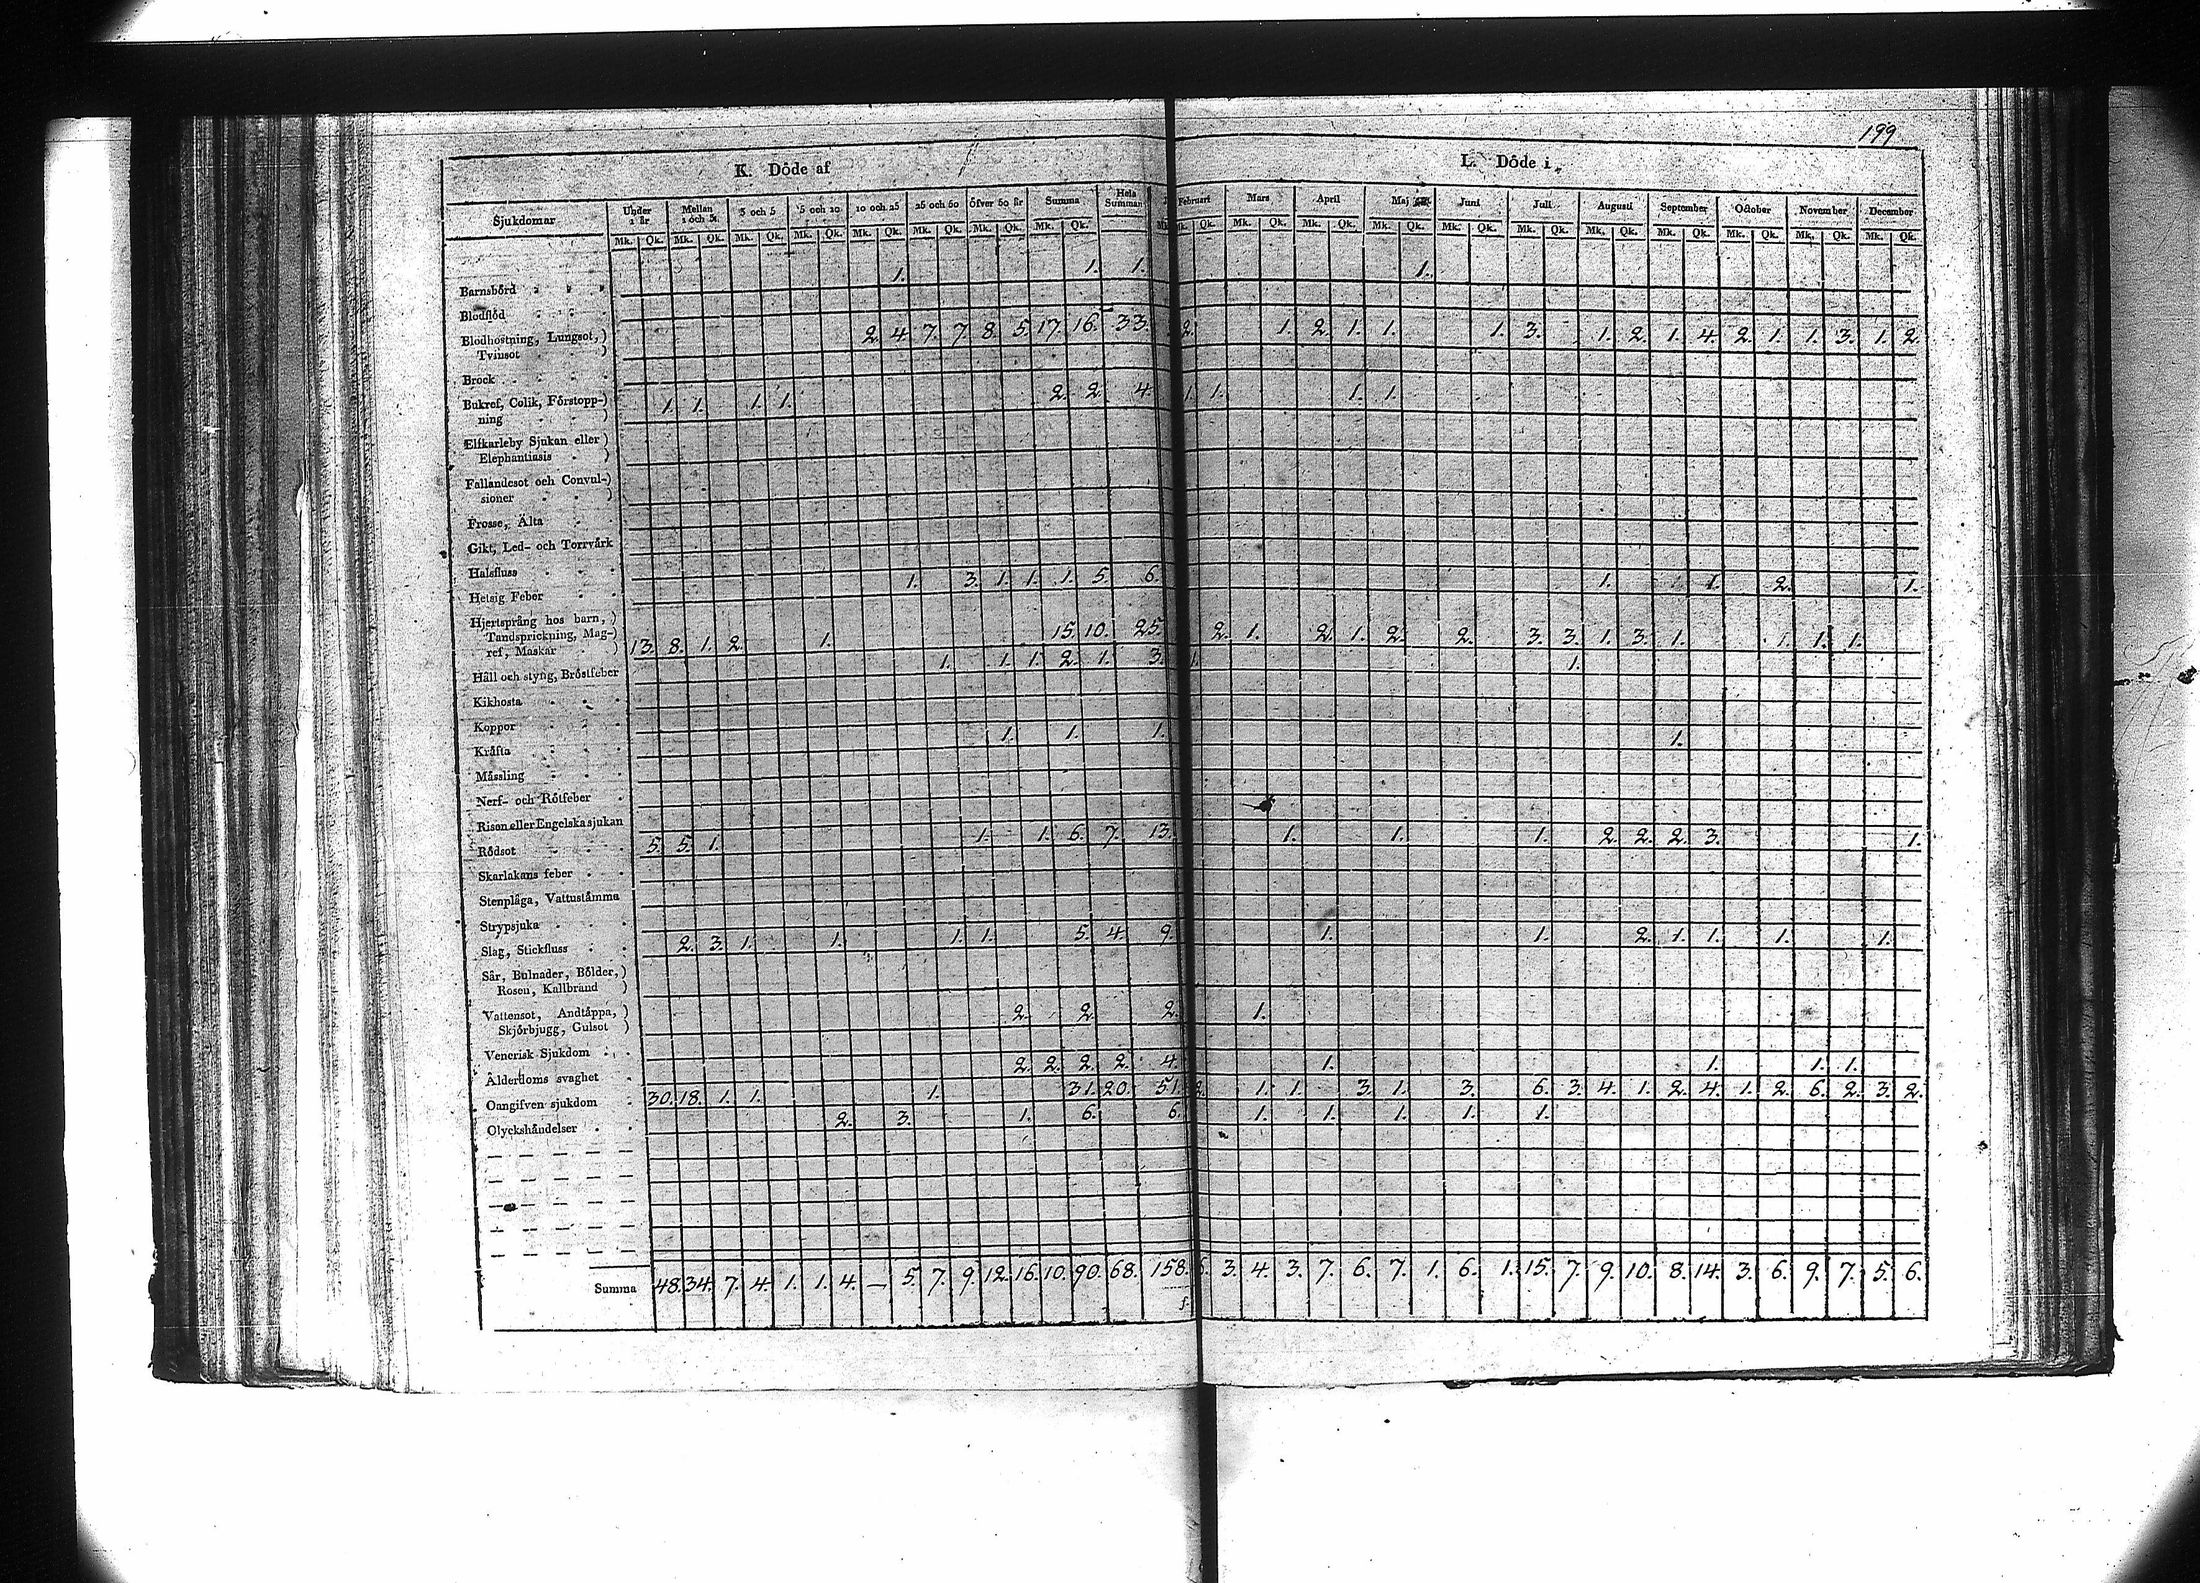 199
K. Döde af L. Döde i
Sjukdomar Under 1 år Mellan 1 och 3 3 och 5 5 och 10 10 och 25 25 och 50 Öfver 50 år Summa Hela Summan Februari Mars April Maj Juni Juli Augusti September October November December
Mk. Qk. Mk. Qk. Mk. Qk. Mk. Qk. Mk. Qk. Mk. Qk. Mk. Qk. Mk. Qk. Qk. Mk. Qk. Mk. Qk. Mk. Qk. Mk. Qk. Mk. Qk. Mk. Qk. Mk. Qk. Mk. Qk. Mk. Qk. Mk. Qk.
Barnsbörd 1. 1. 1. 1.
Blodflöd
Blodhostning, Lungsot,) 2. 4. 7. 7. 8. 5. 17. 16. 33. 2. 1. 2. 1. 1. 1. 3. 1. 2. 1. 4. 2. 1. 1. 3. 1. 2.
Tvinsot )
Brock
Bukref, Colik, Förstopp-) 1. 1. 1. 1. 2. 2. 4. 1. 1. 1. 1.
ning )
Elfkarleby Sjukan eller )
Elephantiasis )
Fallandesot och Convul-)
sioner )
Frosse, Älta
Gikt, Led- och Torrvärk
Halsfluss
Hetsig Feber 1. 3. 1. 1. 1. 5. 6. 1. 1. 2. 1.
Hjertsprång hos barn, )
Tandsprickning, Mag-) 13. 8. 1. 2. 1. 15. 10. 25. 2. 1. 2. 1. 2. 2. 3. 3. 1. 3. 1. 1. 1. 1.
ref, Maskar )
Håll och styng, Bröstfeber 1. 1. 1. 2. 1. 3. 1. 1.
Kikhosta
Koppor
Kräfta 1. 1. 1. 1.
Mässling
Nerf- och Rötfeber
Risen eller Engelska sjukan
Rödsot 5. 5. 1. 1. 1. 6. 7. 13. 1. 1. 1. 2. 2. 2. 3. 1.
Skarlakans feber
Stenplåga, Vattustämma
Strypsjuka
Slag, Stickfluss 2. 3. 1. 1. 1. 1. 5. 4. 9. 1. 1. 2. 1. 1. 1. 1.
Sår, Bulnader, Bölder,)
Rosen, Kallbrand )
Vattensot, Andtäppa, ) 2. 2. 2. 1.
Skjörbjugg, Gulsot )
Venerisk Sjukdom
Ålderdoms svaghet 2. 2. 2. 2. 4. 1. 1. 1. 1.
Oangifven sjukdom 30. 18. 1. 1. 1. 31. 20. 51. 2. 1. 1. 3. 1. 3. 6. 3. 4. 1. 2. 4. 1. 2. 6. 2. 3. 2.
Olyckshändelser 2. 3. 1. 6. 6. 1. 1. 1. 1. 1.
Summa 48. 34. 7. 4. 1. 1. 4. — 5. 7. 9. 12. 16. 10. 90. 68. 158. 3. 4. 3. 7. 6. 7. 1. 6. 1. 15. 7. 9. 10. 8. 14. 3. 6. 9. 7. 5. 6.